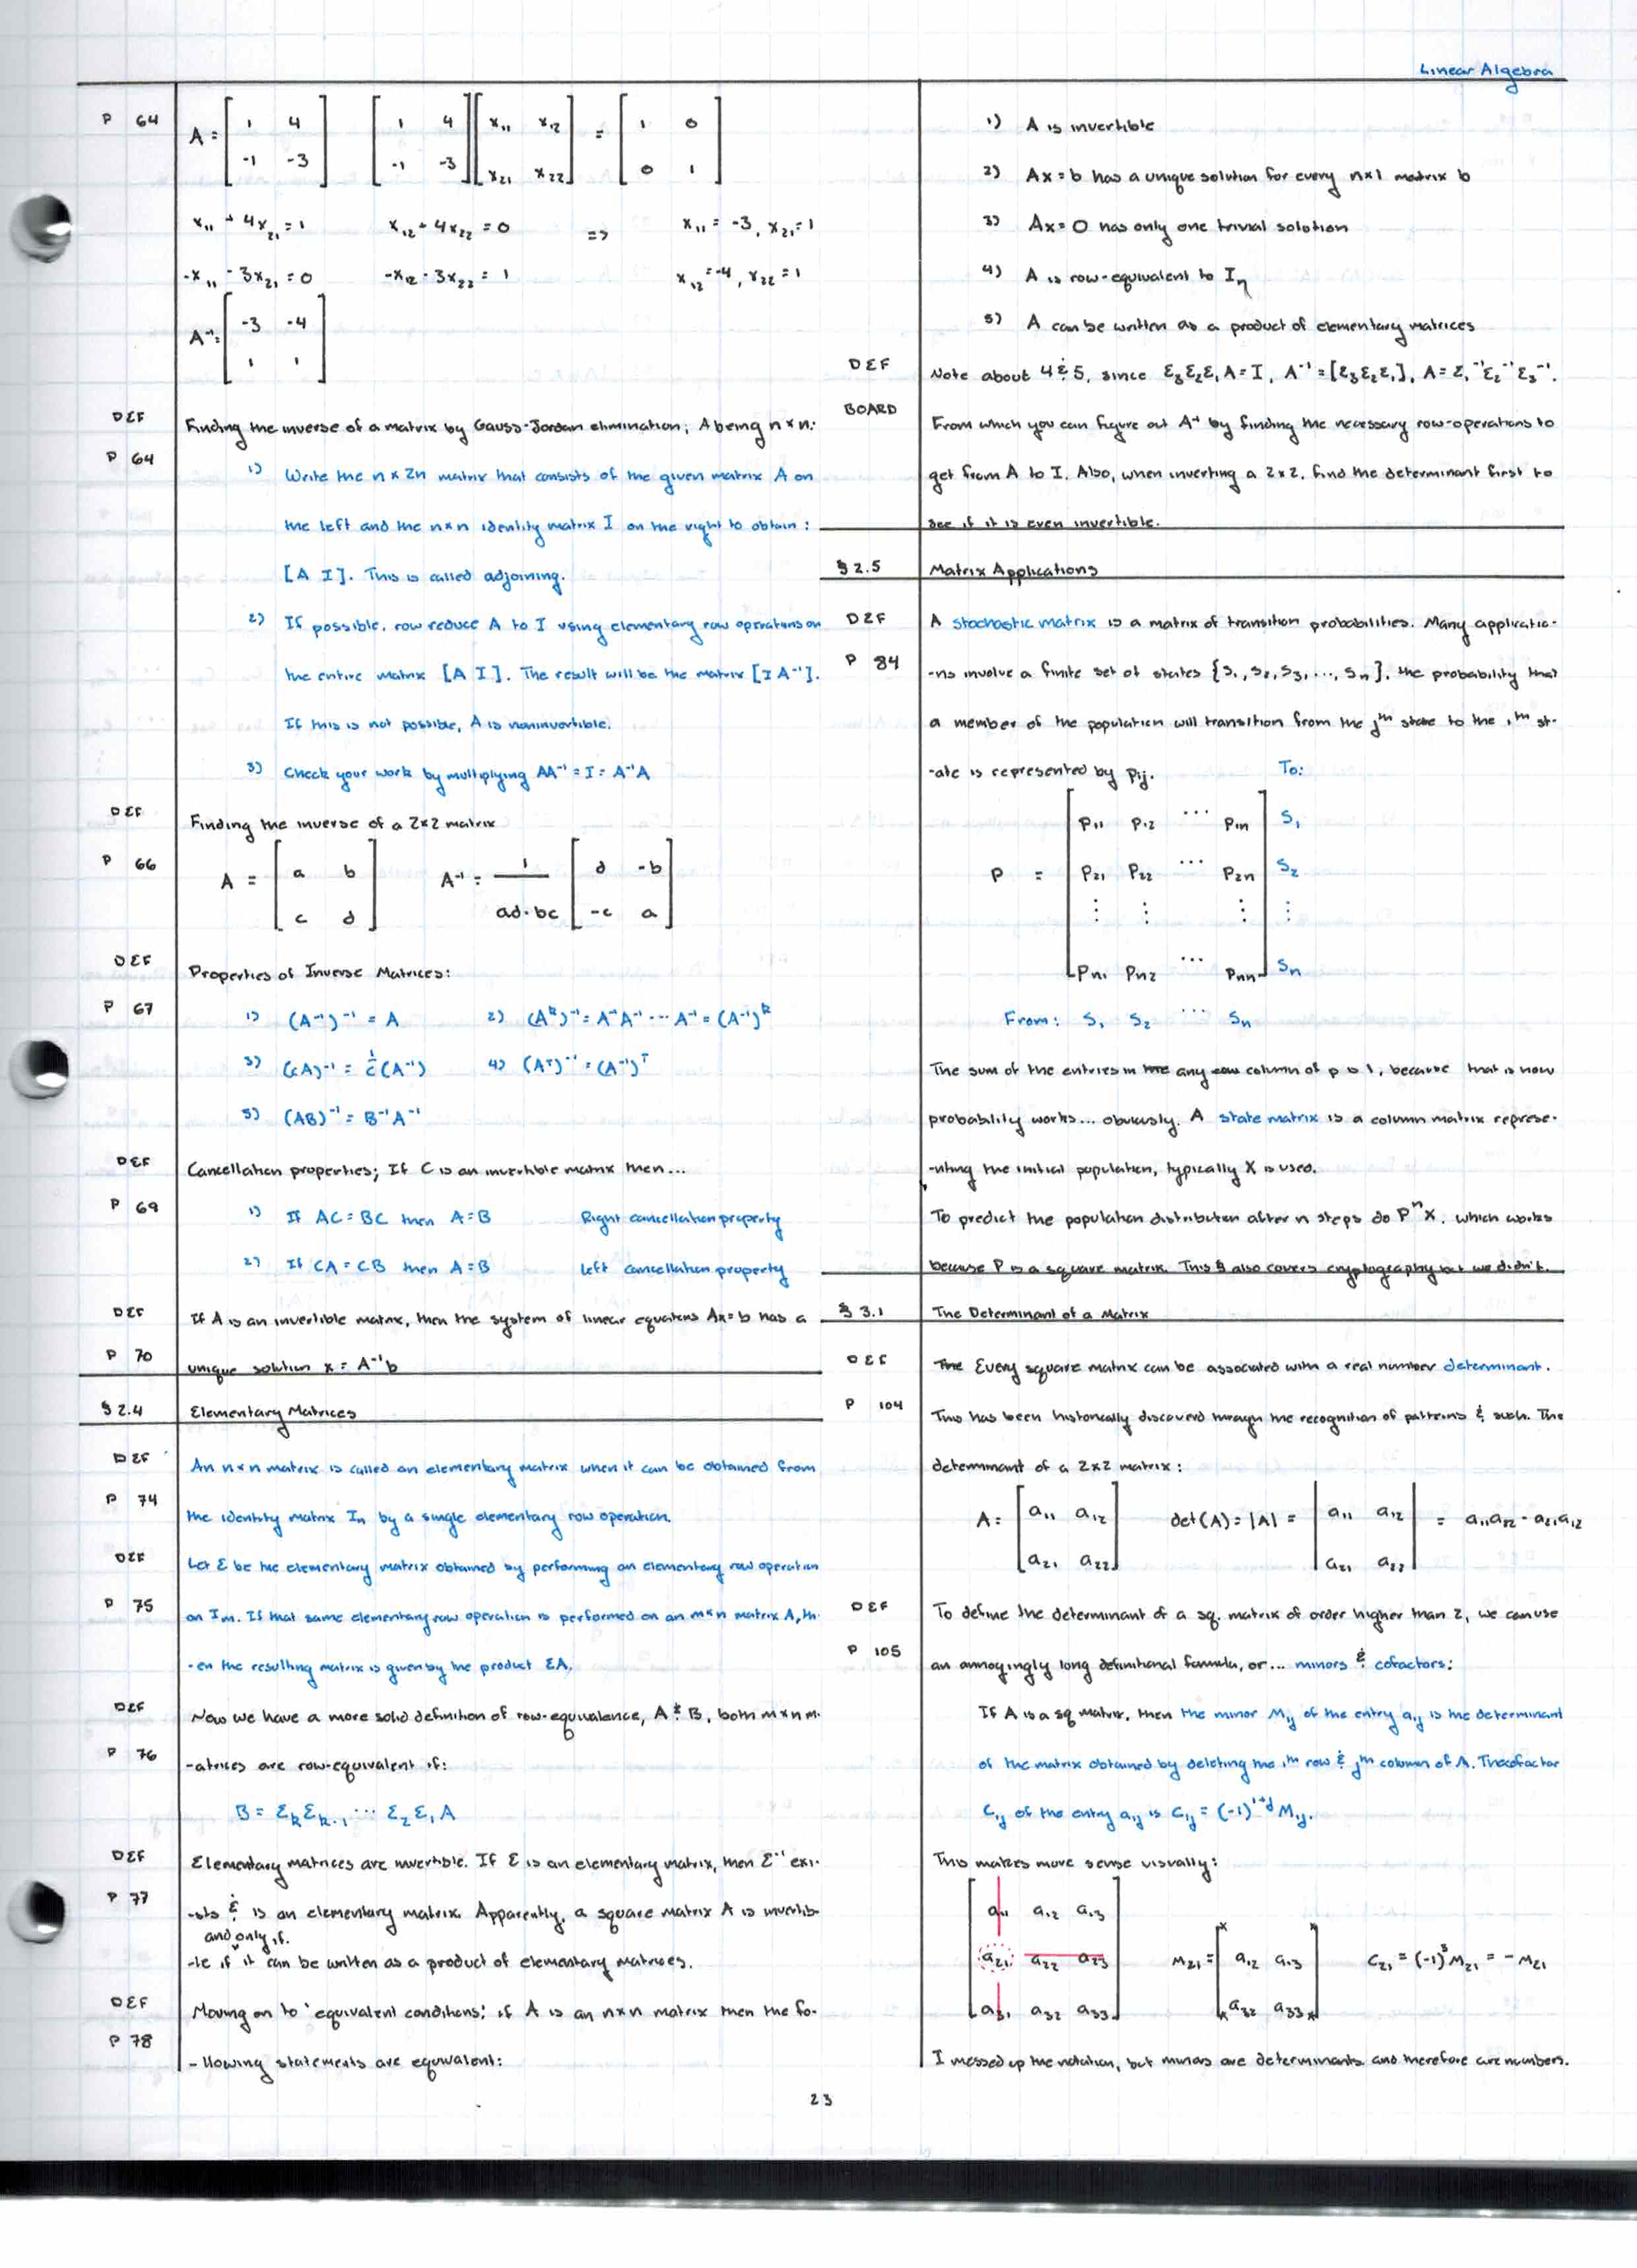 Linear Algebra
P 64
A = [ 1 4 ; -1 -3 ] [ 1 4 ; -1 -3 ] [ x₁₁ x₁₂ ; x₂₁ x₂₂ ] = [ 1 0 ; 0 1 ]
x₁₁ + 4x₂₁ = 1 x₁₂ + 4x₂₂ = 0 => x₁₁ = -3, x₂₁ = 1
-x₁₁ - 3x₂₁ = 0 -x₁₂ - 3x₂₂ = 1 x₁₂ = -4, x₂₂ = 1
A⁻¹ = [ -3 -4 ; 1 1 ]
DEF Finding the inverse of a matrix by Gauss-Jordan elimination; A being n×n:
P 64 1) Write the n × 2n matrix that consists of the given matrix A on
the left and the n×n identity matrix I on the right to obtain:
[A I]. This is called adjoining.
2) If possible, row reduce A to I using elementary row operations on
the entire matrix [A I]. The result will be the matrix [I A⁻¹].
If this is not possible, A is noninvertible.
3) Check your work by multiplying AA⁻¹ = I = A⁻¹A
DEF Finding the inverse of a 2×2 matrix
P 66 A = [ a b ; c d ] A⁻¹ = 1/(ad-bc) [ d -b ; -c a ]
DEF Properties of Inverse Matrices:
P 67 1) (A⁻¹)⁻¹ = A 2) (Aᵏ)⁻¹ = A⁻¹A⁻¹ ··· A⁻¹ = (A⁻¹)ᵏ
3) (cA)⁻¹ = 1/c (A⁻¹) 4) (Aᵀ)⁻¹ = (A⁻¹)ᵀ
5) (AB)⁻¹ = B⁻¹A⁻¹
DEF Cancellation properties; If C is an invertible matrix then...
P 69 1) If AC = BC then A = B Right cancellation property
2) If CA = CB then A = B left cancellation property
DEF If A is an invertible matrix, then the system of linear equations Ax = b has a
P 70 unique solution x = A⁻¹b
§ 2.4 Elementary Matrices
DEF An n×n matrix is called an elementary matrix when it can be obtained from
P 74 the identity matrix Iₙ by a single elementary row operation.
DEF Let E be the elementary matrix obtained by performing an elementary row operation
P 75 on Iₘ. If that same elementary row operation is performed on an m×n matrix A, th-
-en the resulting matrix is given by the product EA.
DEF Now we have a more solid definition of row-equivalence, A & B, both m×n m-
P 76 -atrices are row-equivalent if:
B = EₖEₖ₋₁ ··· E₂E₁A
DEF Elementary matrices are invertible. If E is an elementary matrix, then E⁻¹ exi-
P 77 -sts & is an elementary matrix. Apparently, a square matrix A is invertib-
and only if
-le if it can be written as a product of elementary matrices.
DEF Moving on to 'equivalent conditions'; if A is an n×n matrix then the fo-
P 78 -llowing statements are equivalent:
1) A is invertible
2) Ax = b has a unique solution for every n×1 matrix b
3) Ax = 0 has only one trivial solution
4) A is row-equivalent to Iₙ
5) A can be written as a product of elementary matrices
DEF Note about 4 & 5, since E₃E₂E₁A = I, A⁻¹ = [E₃E₂E₁], A = E₁⁻¹E₂⁻¹E₃⁻¹.
BOARD From which you can figure out A⁻¹ by finding the necessary row-operations to
get from A to I. Also, when inverting a 2×2, find the determinant first to
see if it is even invertible.
§ 2.5 Matrix Applications
DEF A stochastic matrix is a matrix of transition probabilities. Many applicatio-
P 84 -ns involve a finite set of states {S₁, S₂, S₃, ..., Sₙ}, the probability that
a member of the population will transition from the jᵗʰ state to the iᵗʰ st-
-ate is represented by Pij. To:
P = [ P₁₁ P₁₂ ··· P₁ₙ ] S₁
[ P₂₁ P₂₂ ··· P₂ₙ ] S₂
⋮ ⋮ ⋮ ⋮
[ Pₙ₁ Pₙ₂ ··· Pₙₙ ] Sₙ
From: S₁ S₂ ··· Sₙ
The sum of the entries in any column of P is 1, because that is how
probability works... obviously. A state matrix is a column matrix represe-
-nting the initial population, typically X is used.
To predict the population distribution after n steps do PⁿX. which works
because P is a square matrix. This § also covers cryptography but we didn't.
§ 3.1 The Determinant of a Matrix
DEF The Every square matrix can be associated with a real number determinant.
P 104 This has been historically discoverd through the recognition of patterns & such. The
determinant of a 2×2 matrix:
A = [ a₁₁ a₁₂ ; a₂₁ a₂₂ ] det(A) = |A| = | a₁₁ a₁₂ ; a₂₁ a₂₂ | = a₁₁a₂₂ - a₂₁a₁₂
DEF To define the determinant of a sq. matrix of order higher than 2, we can use
P 105 an annoyingly long definitional formula, or... minors & cofactors:
If A is a sq matrix, then the minor Mij of the entry aij is the determinant
of the matrix obtained by deleting the iᵗʰ row & jᵗʰ column of A. The cofactor
Cij of the entry aij is Cij = (-1)ⁱ⁺ʲMij.
This makes more sense visually:
[ a₁₁ a₁₂ a₁₃ ]
[ a₂₁ a₂₂ a₂₃ ] M₂₁ = [ a₁₂ a₁₃ ; a₃₂ a₃₃ ] C₂₁ = (-1)³M₂₁ = -M₂₁
[ a₃₁ a₃₂ a₃₃ ]
I messed up the notation, but minors are determinants and therefore are numbers.
23